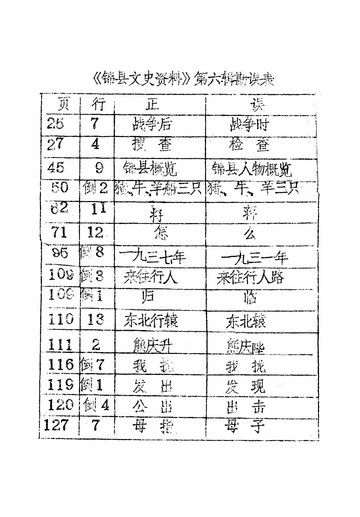 《锦县文史资料》第六辑勘误表
页 行 正 误
25 7 战争后 战争时
27 4 搜查 检查
45 9 锦县概览 锦县人物概览
60 倒2 猪、牛、羊船三只 猪、牛、羊三只
62 11
71 12 怎 么
96 倒8 一九三七年 一九三一年
109 倒3 来往行人 来往行人路
109 倒1 归 临
110 13 东北行辕 东北辕
111 2 熊庆升 熊庆
116 倒7 我 我
119 倒1 发出 发现
120 倒4 公出 出击
127 7 母指 母子